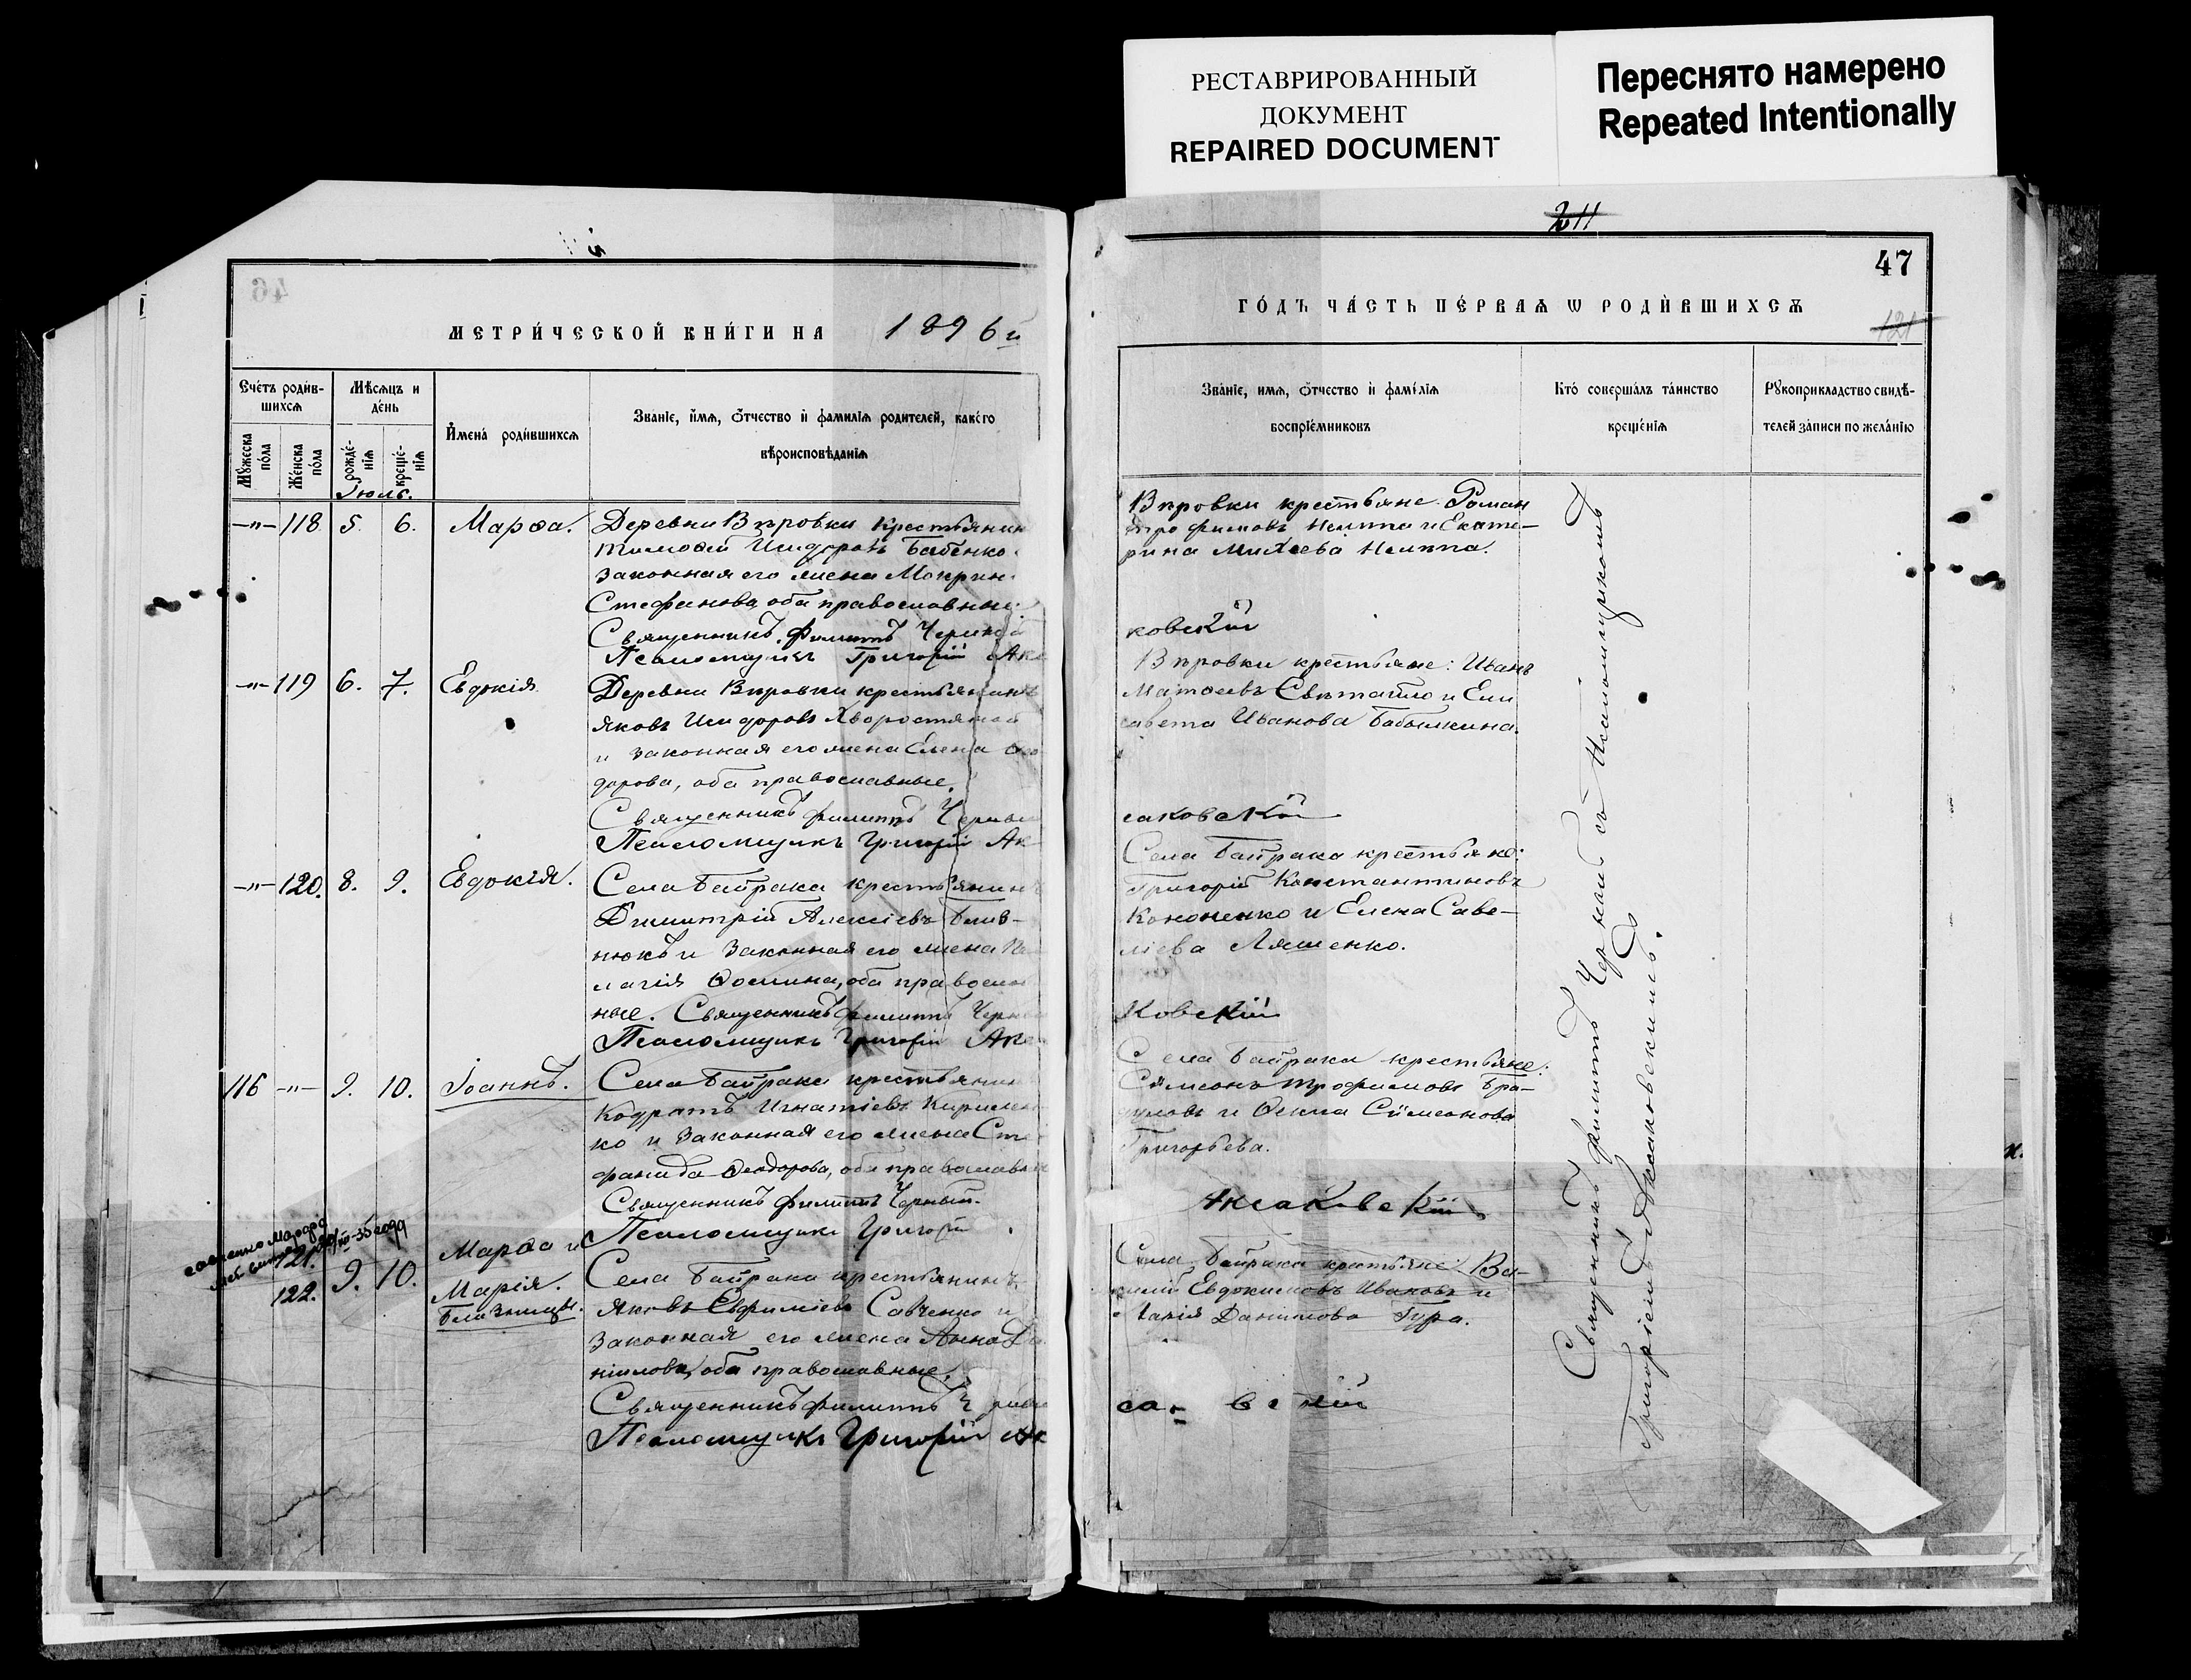 РЕСТАВРИРОВАННЫЙ
ДОКУМЕНТ
REPAIRED DOCUMENT
Переснято намерено
Repeated Intentionally
46
МЕТРИ́ЧЕСКОЙ КНИ́ГИ НА 1896й
Сче́тъ роди́в-
шихсѧ
Мꙋ́жеска
по́ла
Же́нска
по́ла
Мѣ́сѧцъ и
де́нь
рожде́-
нїѧ
креще́-
нїѧ
И҆мена̀ роди́вшихсѧ
Зва́нїе, и҆́мѧ, ѻ҆́тчество и҆ фами́лїѧ роди́телей, како́го
вѣроисповѣ́данїѧ
Іюль.
—"— 118 5. 6. Марѳа.
Деревни Вировки крестьянин
Тимоѳей Исидоровъ Бабенко
законная его жена Мокрин
Стефанова, оба православные.
Священникъ Филиппъ Черный
Псаломщикъ Григорій Акс
—"— 119 6. 7. Евдокія
Деревни Вировки крестьянинъ
Яковъ Исидоровъ Хворостяной
и законная его жена Елена Ѳео
дорова, оба православные.
Священникъ Филиппъ Черный
Псаломщикъ Григорій Ак
—"— 120. 8. 9. Евдокія.
Села Байрака крестьянинъ
Димитрій Алексіевъ Блив-
нюкъ и законная его жена Пе
лагія Ѳомина, оба православ
ные. Священникъ Филиппъ Черный
Псаломщикъ Григорій Акс
116 —"— 9. 10. Іоаннъ.
Села Байрака крестьянинъ
Кодратъ Игнатіевъ Кирилен
ко и законная его жена Сте
фанида Ѳеодорова, оба православные
Священникъ Филиппъ Черный.
Псаломщикъ Григорій
121.
122. 9. 10.
Марѳа и
Марія.
Близнецы.
Села Байрака крестьянинъ
Яковъ Евфиміевъ Савченко и
законная его жена Анна Да
ніилова, оба православные.
Священникъ Филиппъ Черный
Псаломщикъ Григорій Ак
211
47
121
ГО́ДЪ ЧА́СТЬ ПЕ́РВАѦ Ѡ РОДИ́ВШИХСѦ
Зва́нїе, имѧ, ѻ҆́тчество и҆ фами́лїѧ
воспрїе́мниковъ
Кто̀ соверша́лъ та́инство
креще́нїѧ
Рꙋкоприкладство свидѣ́-
телей за́писи по жела́нїю
Вировки крестьяне: Роман
Трофимовъ Нелипа и Екате-
рина Михеева Нелипа.
ковскій
Вировки крестьяне: Иванъ
Матѳеевъ Свѣтайло и Ели
савета Иванова Бабошкина.
саковскій
Села Байрака крестьяне:
Григорій Константиновъ
Кононенко и Елена Саве-
ліева Ляшенко.
ковскій
Села Байрака крестьяне:
Сѵмеонъ Трофимовъ
и Ѳекла Сѵмеонова
Григорьева.
Аксаковскій
Села Байрака крестьяне: Ва-
силій Евдокимовъ Ивановъ и
Марія Даніилова Гура.
са
вскій
Священникъ Филиппъ Черный съ Псаломщикомъ
Григоріемъ Аксаковскимъ.